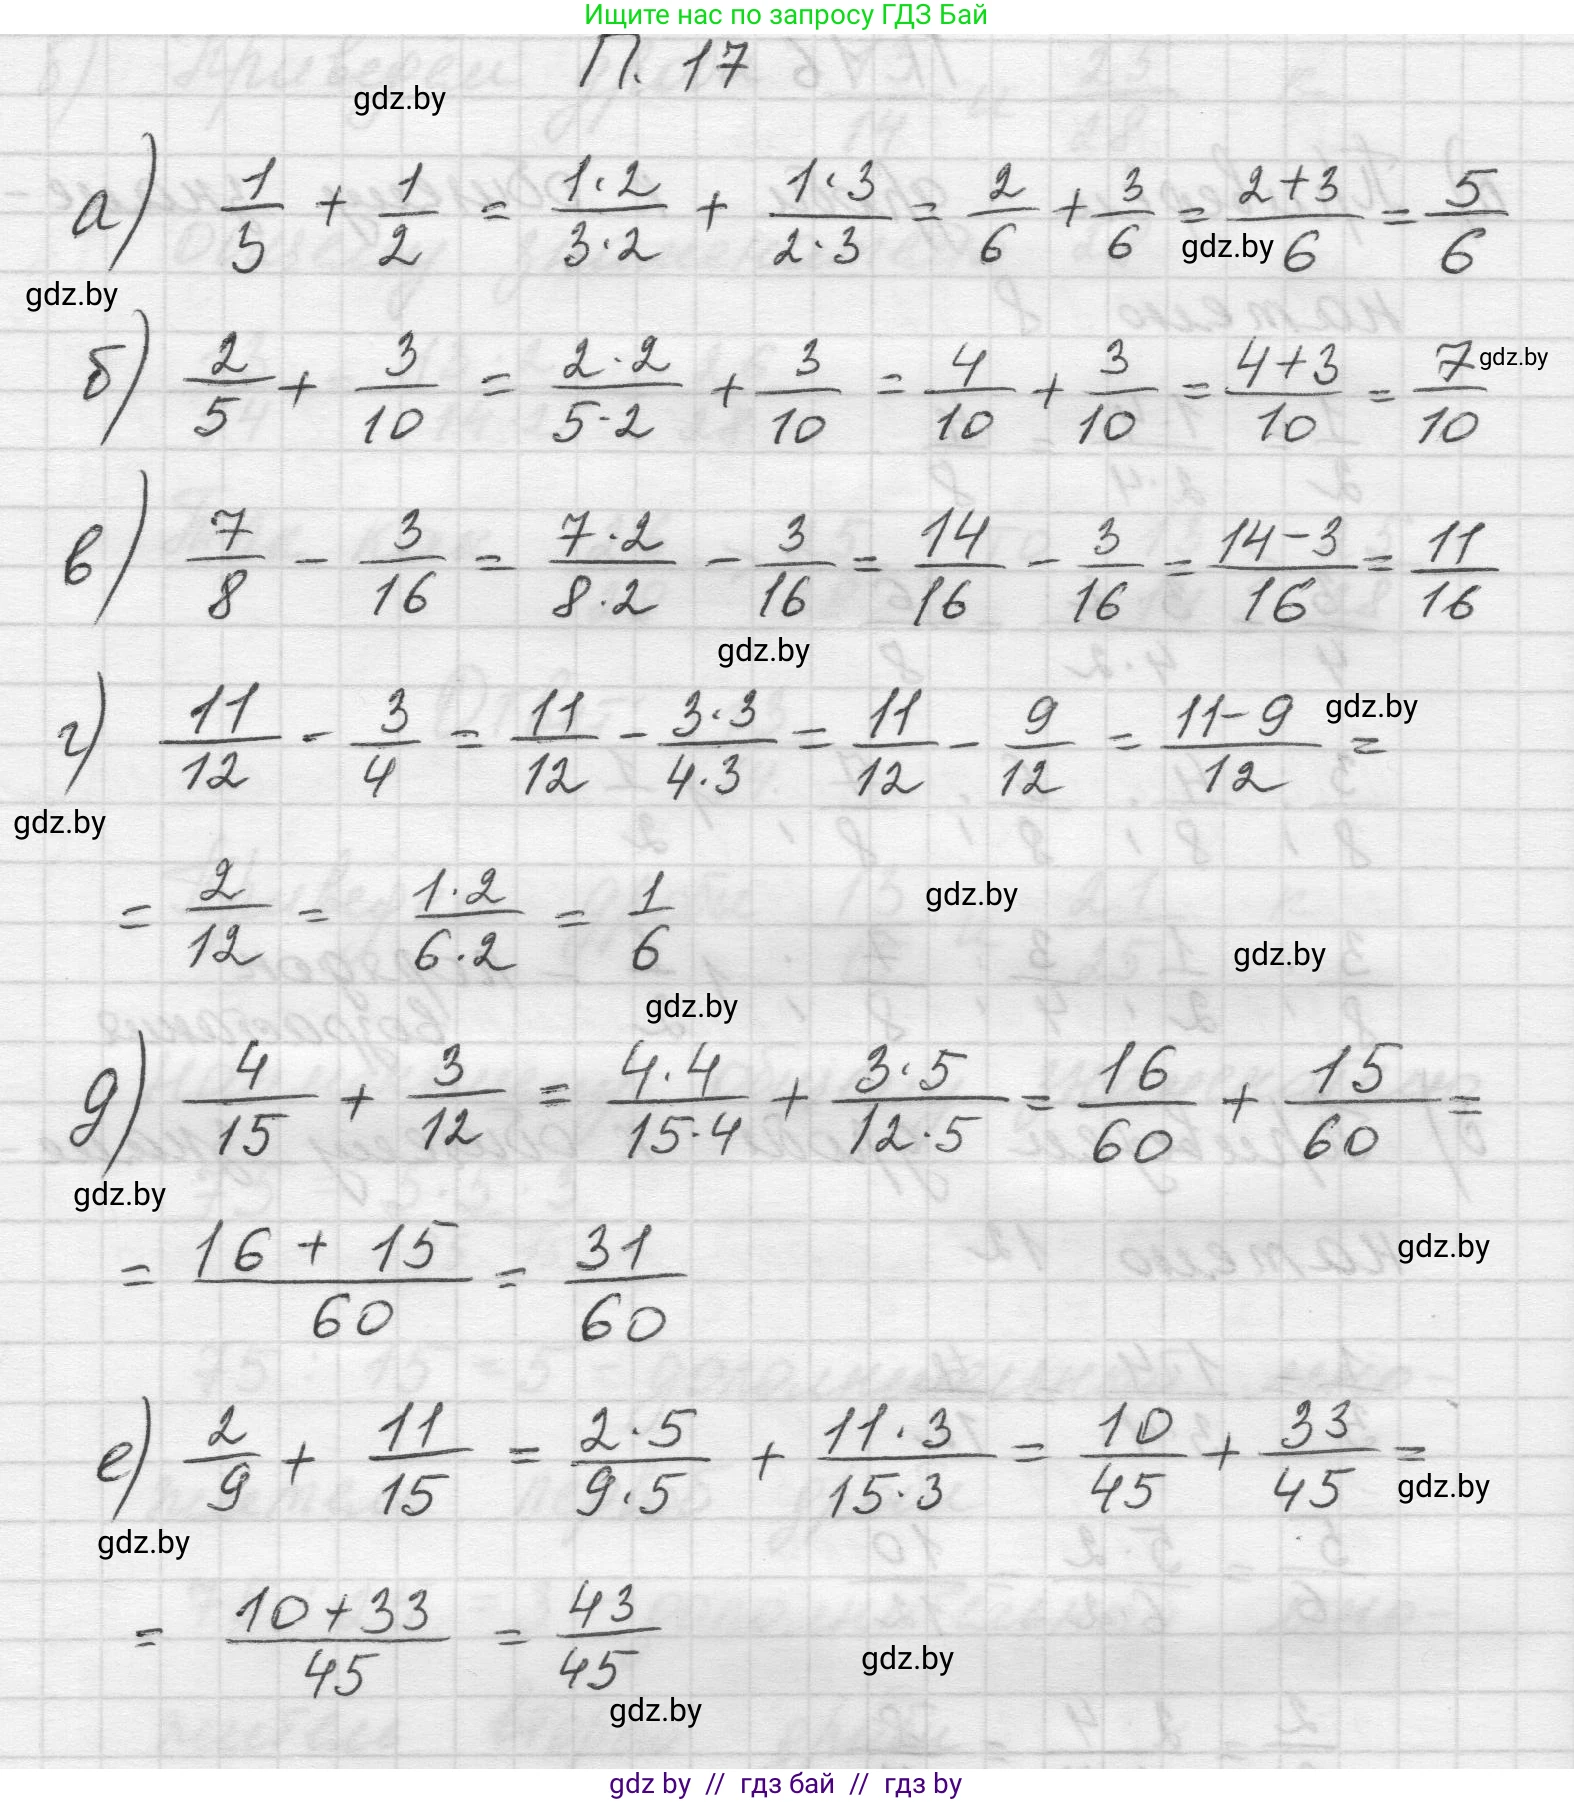 Ищите нас по запросу ГДЗ Бай
П. 17
gdz.by
а) 1/3 + 1/2 = 1·2/3·2 + 1·3/2·3 = 2/6 + 3/6 = 2+3/6 = 5/6
gdz.by
gdz.by
б) 2/5 + 3/10 = 2·2/5·2 + 3/10 = 4/10 + 3/10 = 4+3/10 = 7/10
gdz.by
в) 7/8 - 3/16 = 7·2/8·2 - 3/16 = 14/16 - 3/16 = 14-3/16 = 11/16
gdz.by
г) 11/12 - 3/4 = 11/12 - 3·3/4·3 = 11/12 - 9/12 = 11-9/12 =
gdz.by
gdz.by
= 2/12 = 1·2/6·2 = 1/6
gdz.by
gdz.by
gdz.by
д) 4/15 + 3/12 = 4·4/15·4 + 3·5/12·5 = 16/60 + 15/60 =
gdz.by
= 16 + 15/60 = 31/60
gdz.by
е) 2/9 + 11/15 = 2·5/9·5 + 11·3/15·3 = 10/45 + 33/45 =
gdz.by
gdz.by
= 10+33/45 = 43/45
gdz.by
gdz.by
gdz by // гдз бай // гдз by